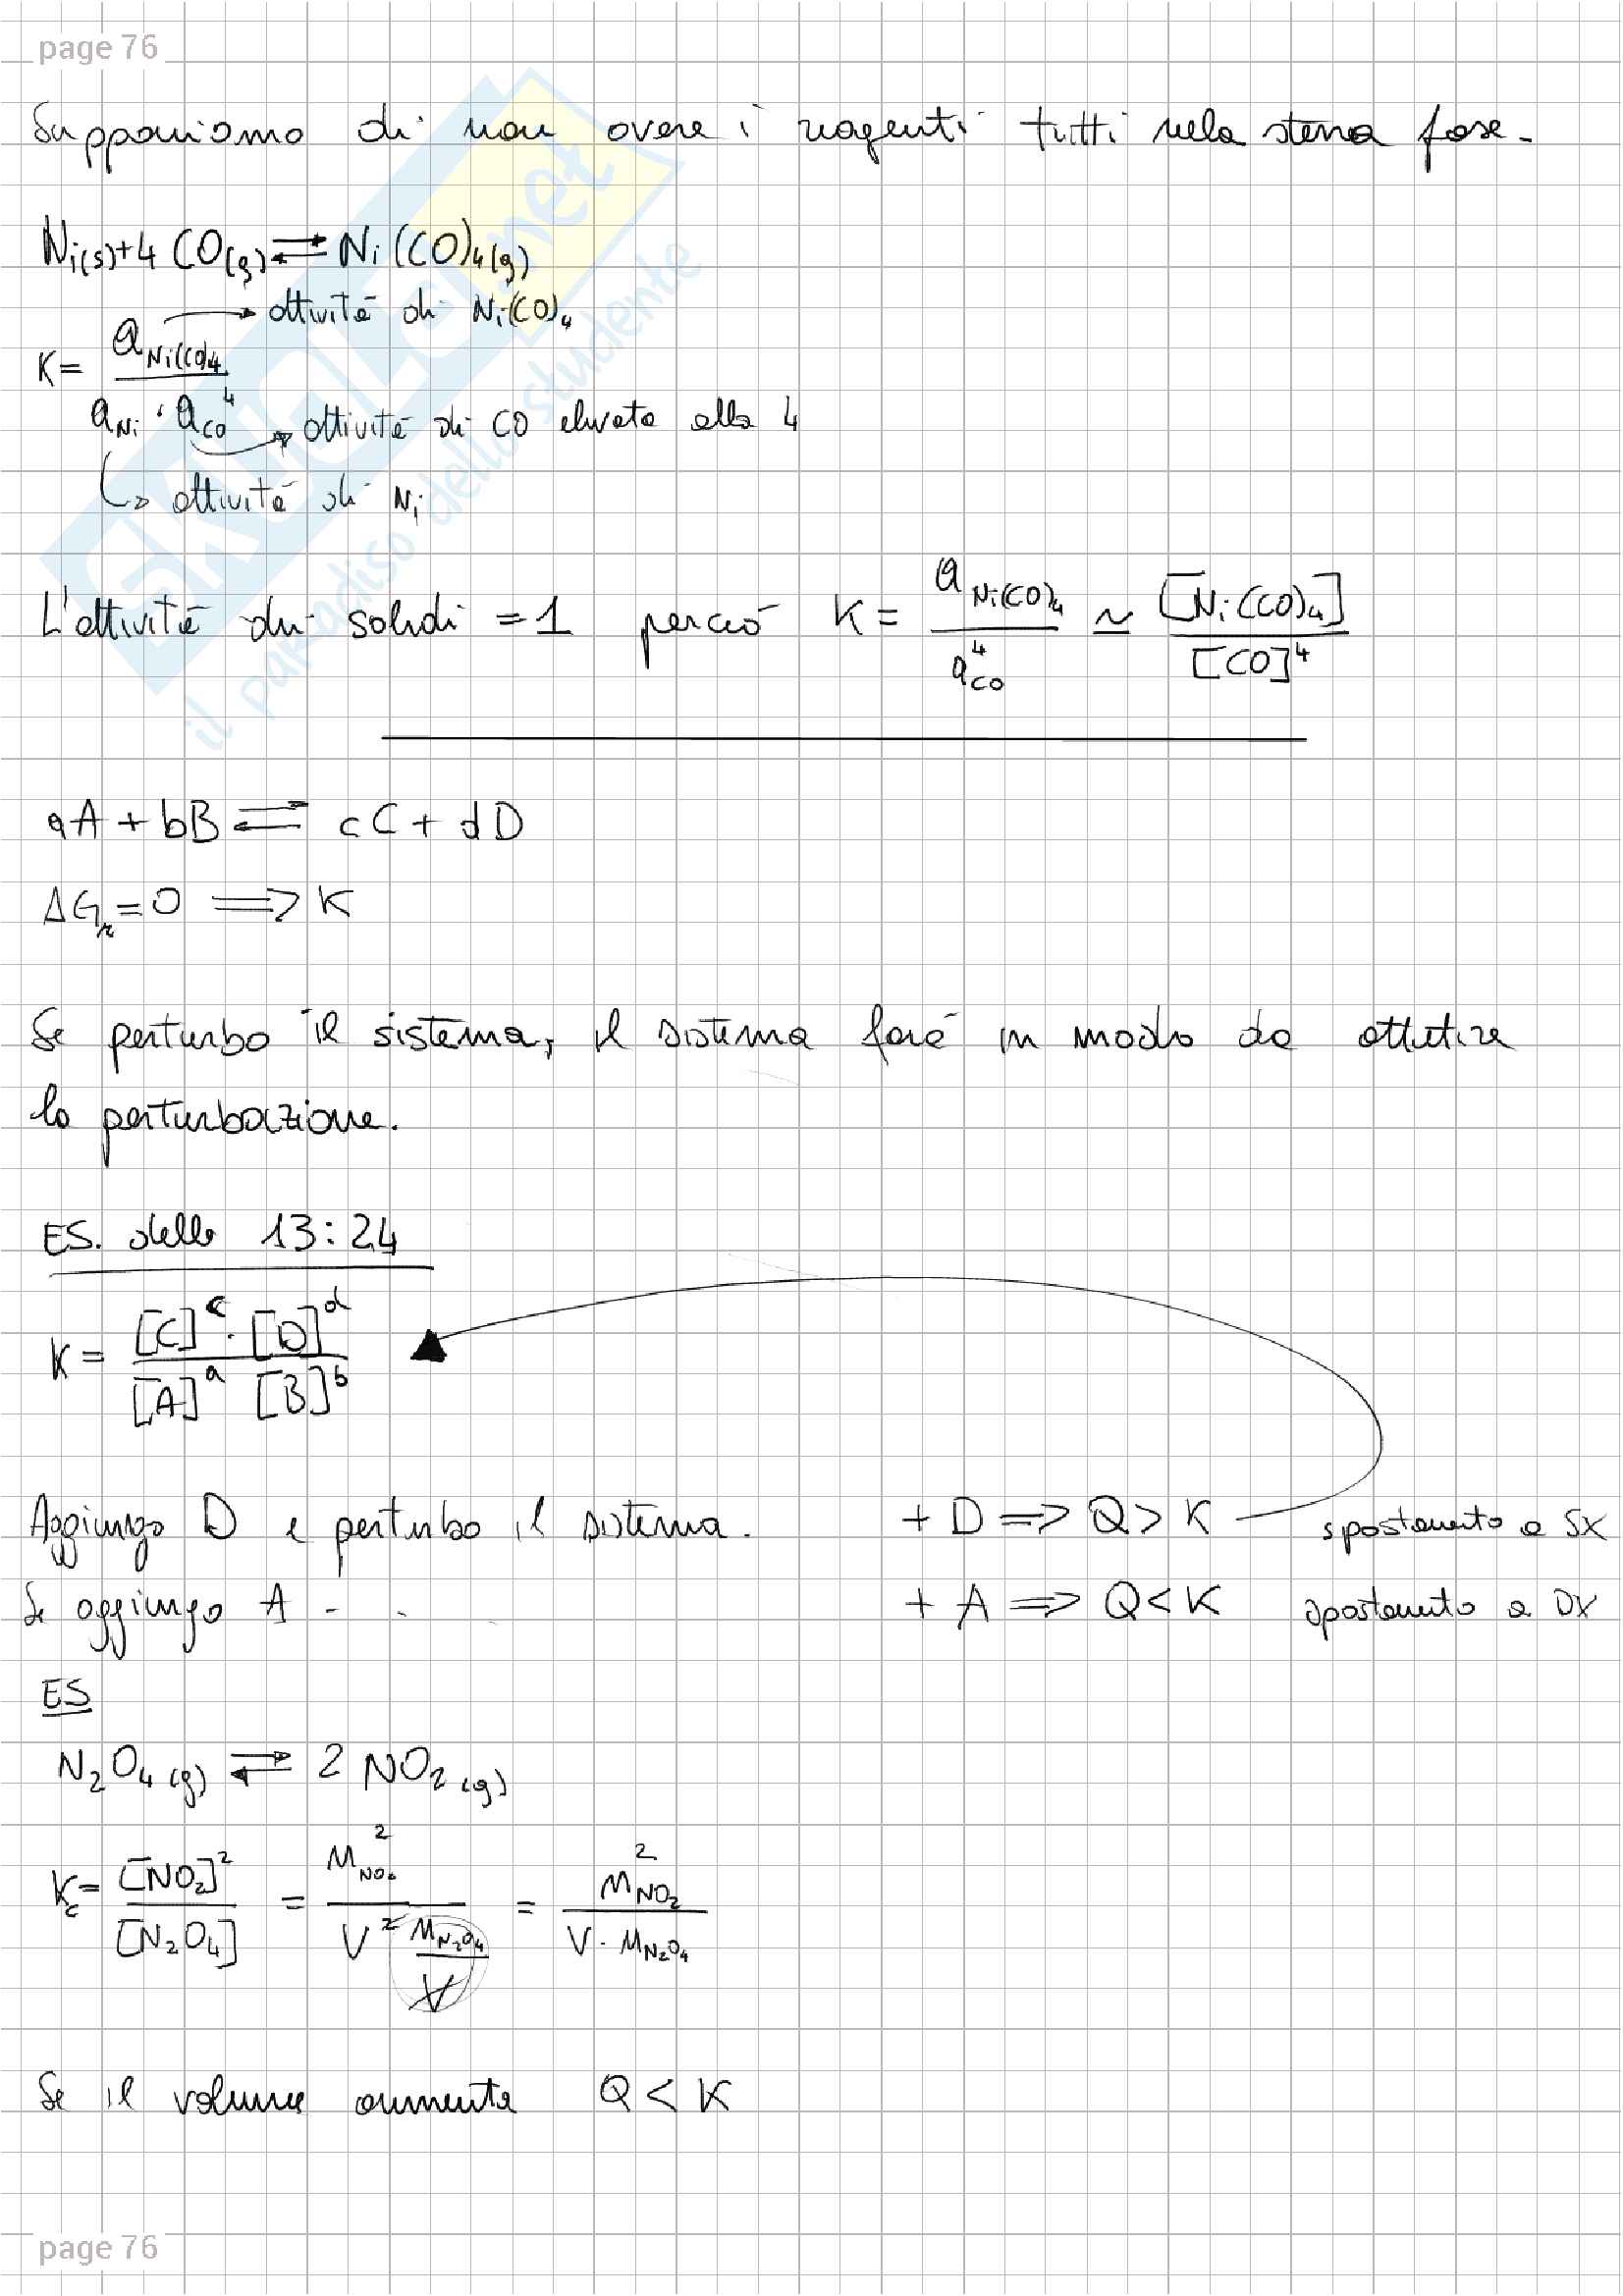 page 76
Supponiamo di non avere i reagenti tutti nela stessa fase.
Ni(s)+4 CO(g) ⇄ Ni(CO)4(g)
→ attività di Ni(CO)4
K = a Ni(CO)4 / (a Ni · a CO^4)
→ attività di CO elevata alla 4
↳ attività di Ni
L'attività dei solidi = 1 perciò K = a Ni(CO)4 / a^4 CO ≃ [Ni(CO)4] / [CO]^4
aA + bB ⇄ cC + dD
ΔGr = 0 ⟹ K
Se perturbo il sistema, il sistema farà in modo da attutire
la perturbazione.
ES. delle 13:24
K = [C]^c · [D]^d / [A]^a [B]^b
Aggiungo D e perturbo il sistema. + D ⟹ Q > K spostamento a SX
Se aggiungo A - - + A ⟹ Q < K spostamento a DX
ES
N2O4 (g) ⇄ 2 NO2 (g)
Kc = [NO2]^2 / [N2O4] = n^2 NO2 / (V^2 n N2O4 / V) = n^2 NO2 / (V · n N2O4)
Se il volume aumenta Q < K
page 76
SKUOLA.net
il paradiso dello studente